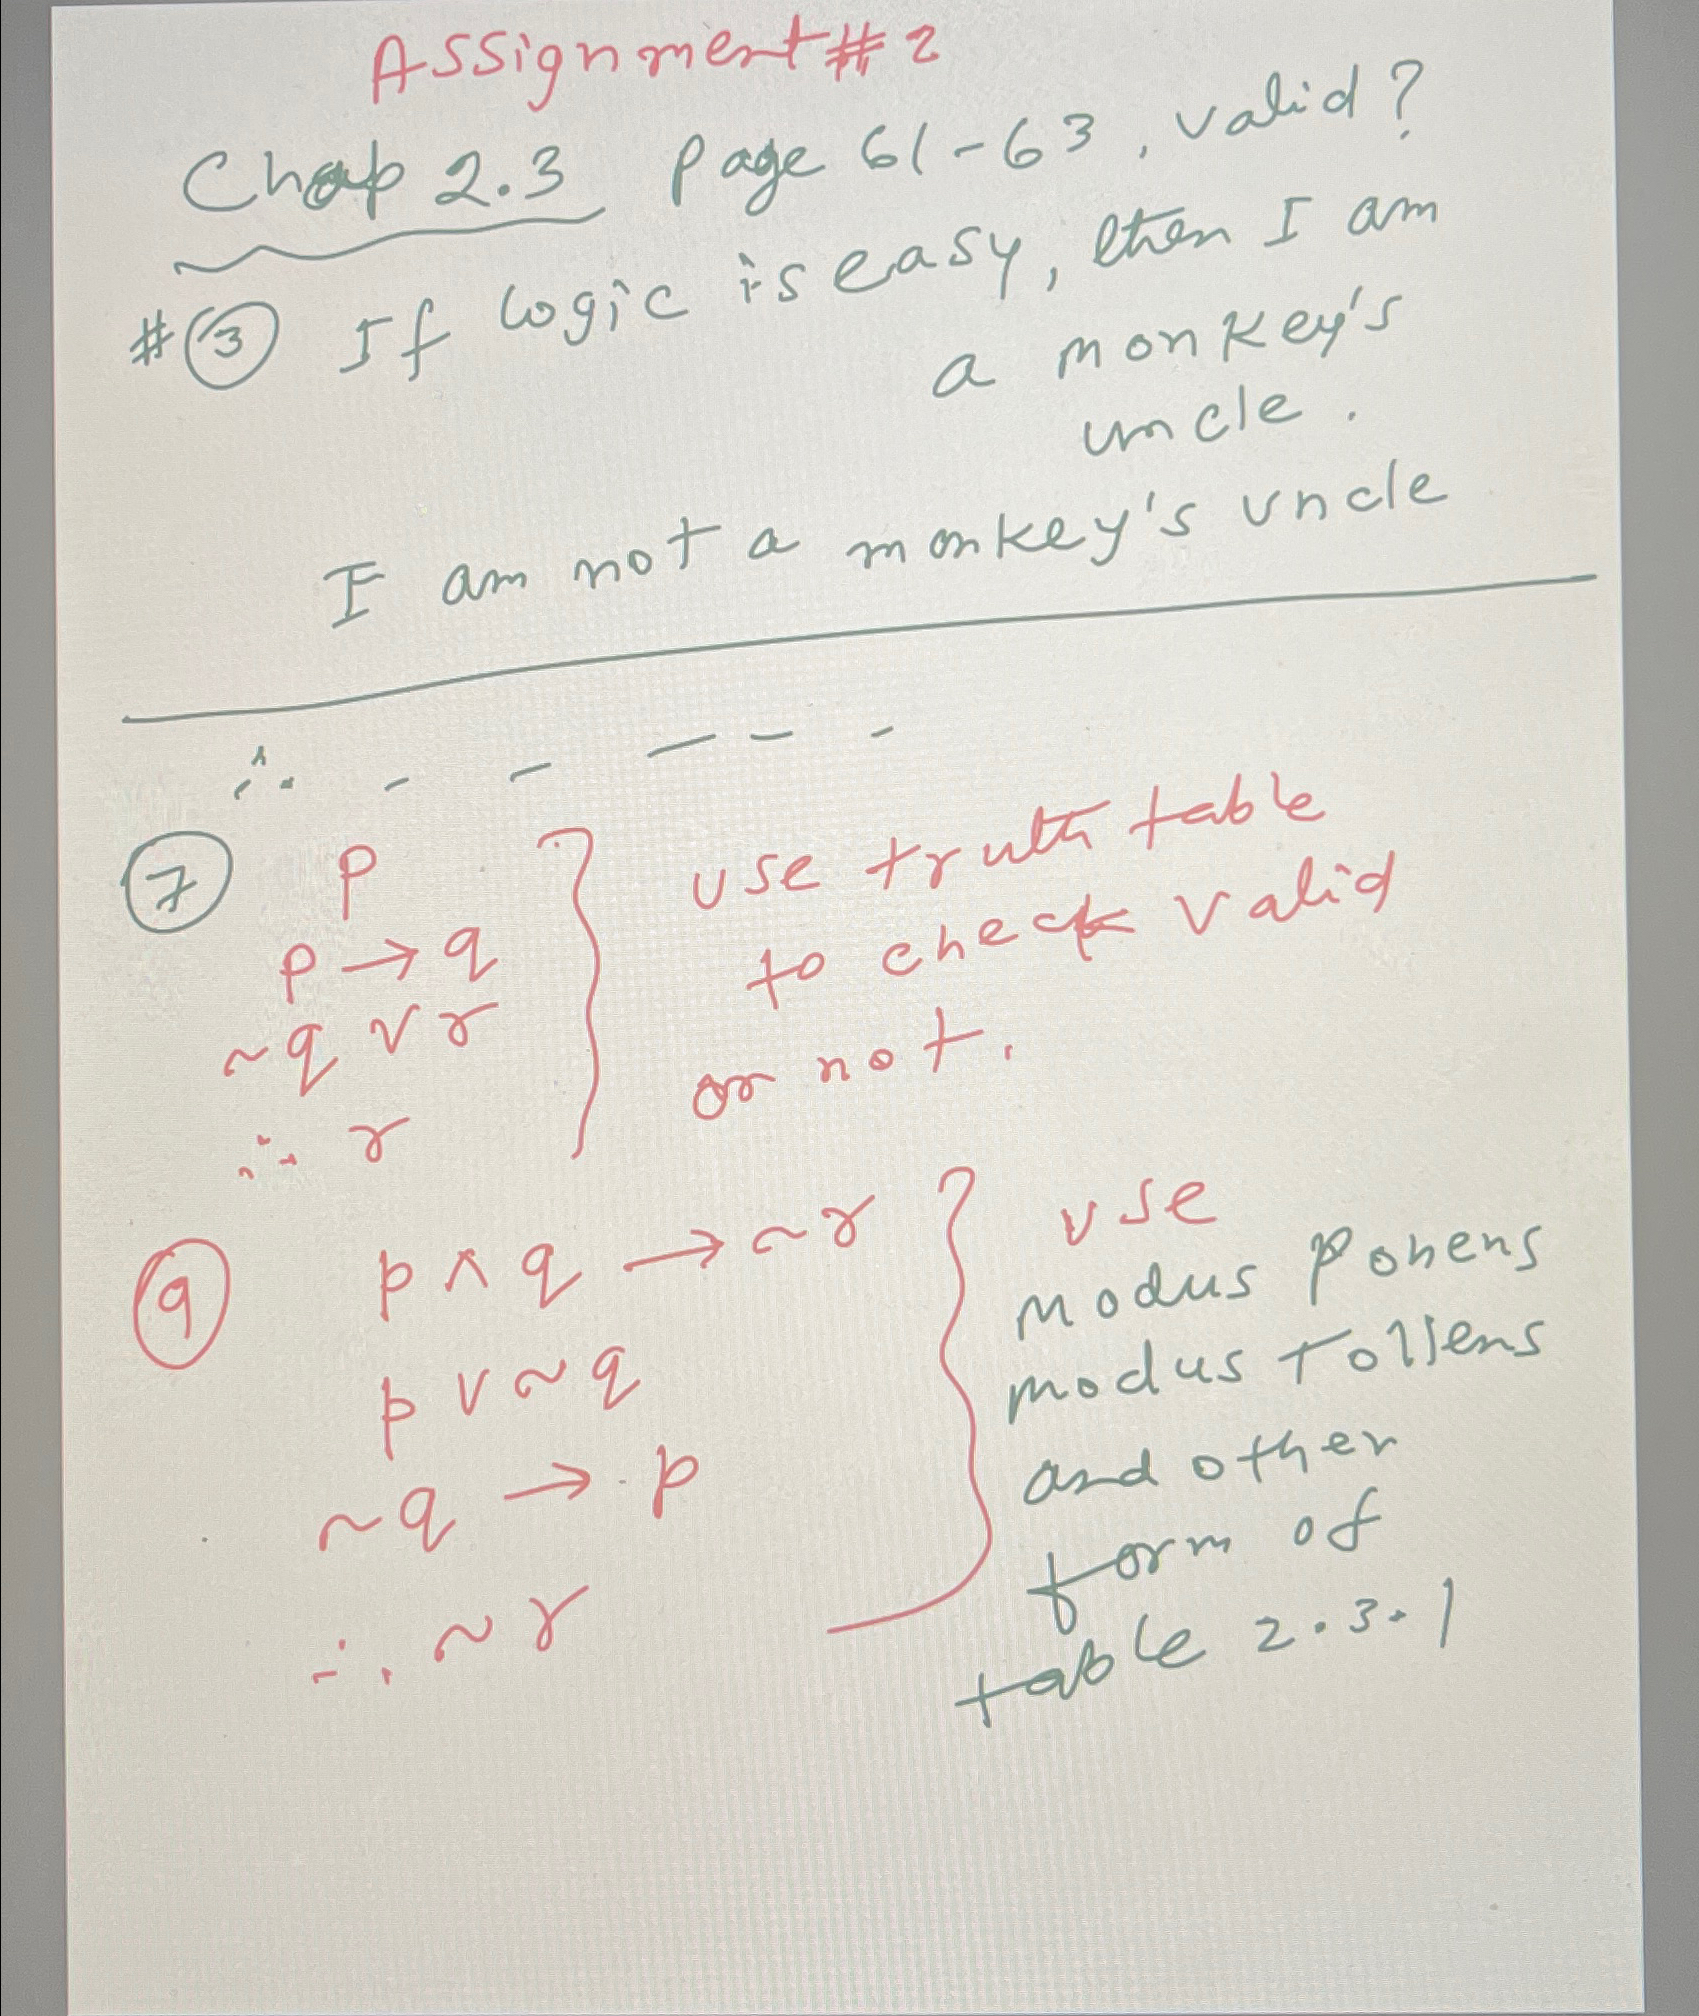 Assignment # 2
Chap 2.3 Page 61-63, valid?
# 3 If logic is easy, then I am
a monkey's
uncle.
I am not a monkey's uncle
∴ - - - - -
7 p
p → q
~q ∨ r
∴ r
use truth table
to check valid
or not.
9 p ∧ q → ~r
p ∨ ~q
~q → p
∴ ~r
use
modus ponens
modus tollens
and other
form of
table 2.3.1